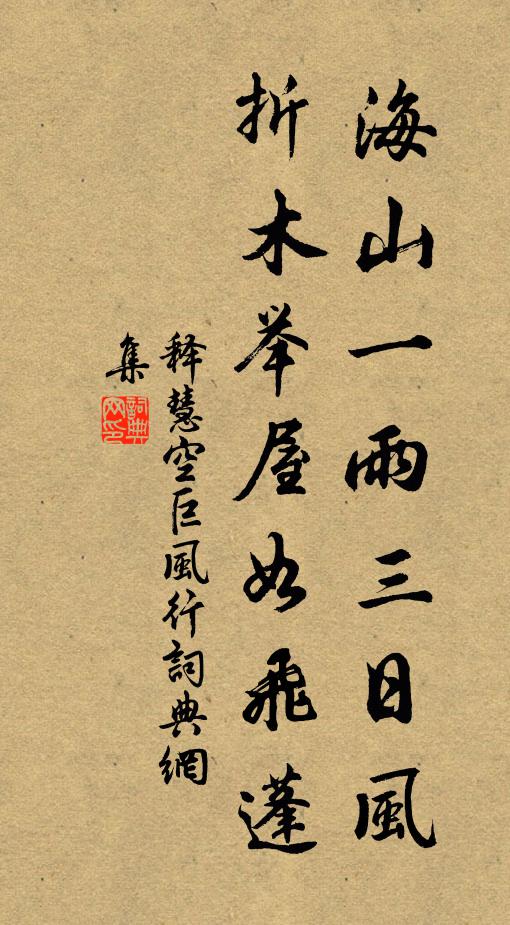 海山一雨三日風
折木举屋如飛蓬
释慧空巨風行詞典網
集
詞典
网印